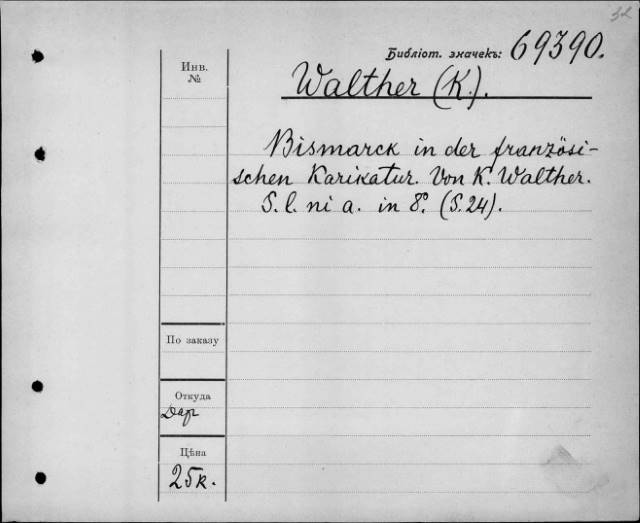 Библіот. значекъ: 69390.
Walther (K.).
Инв.
№
Bismarck in der französi-
schen Karikatur. Von K. Walther.
S. l. ni a. in 8º. (S. 24).
По заказу
Откуда
Дар
Цѣна
25 к.